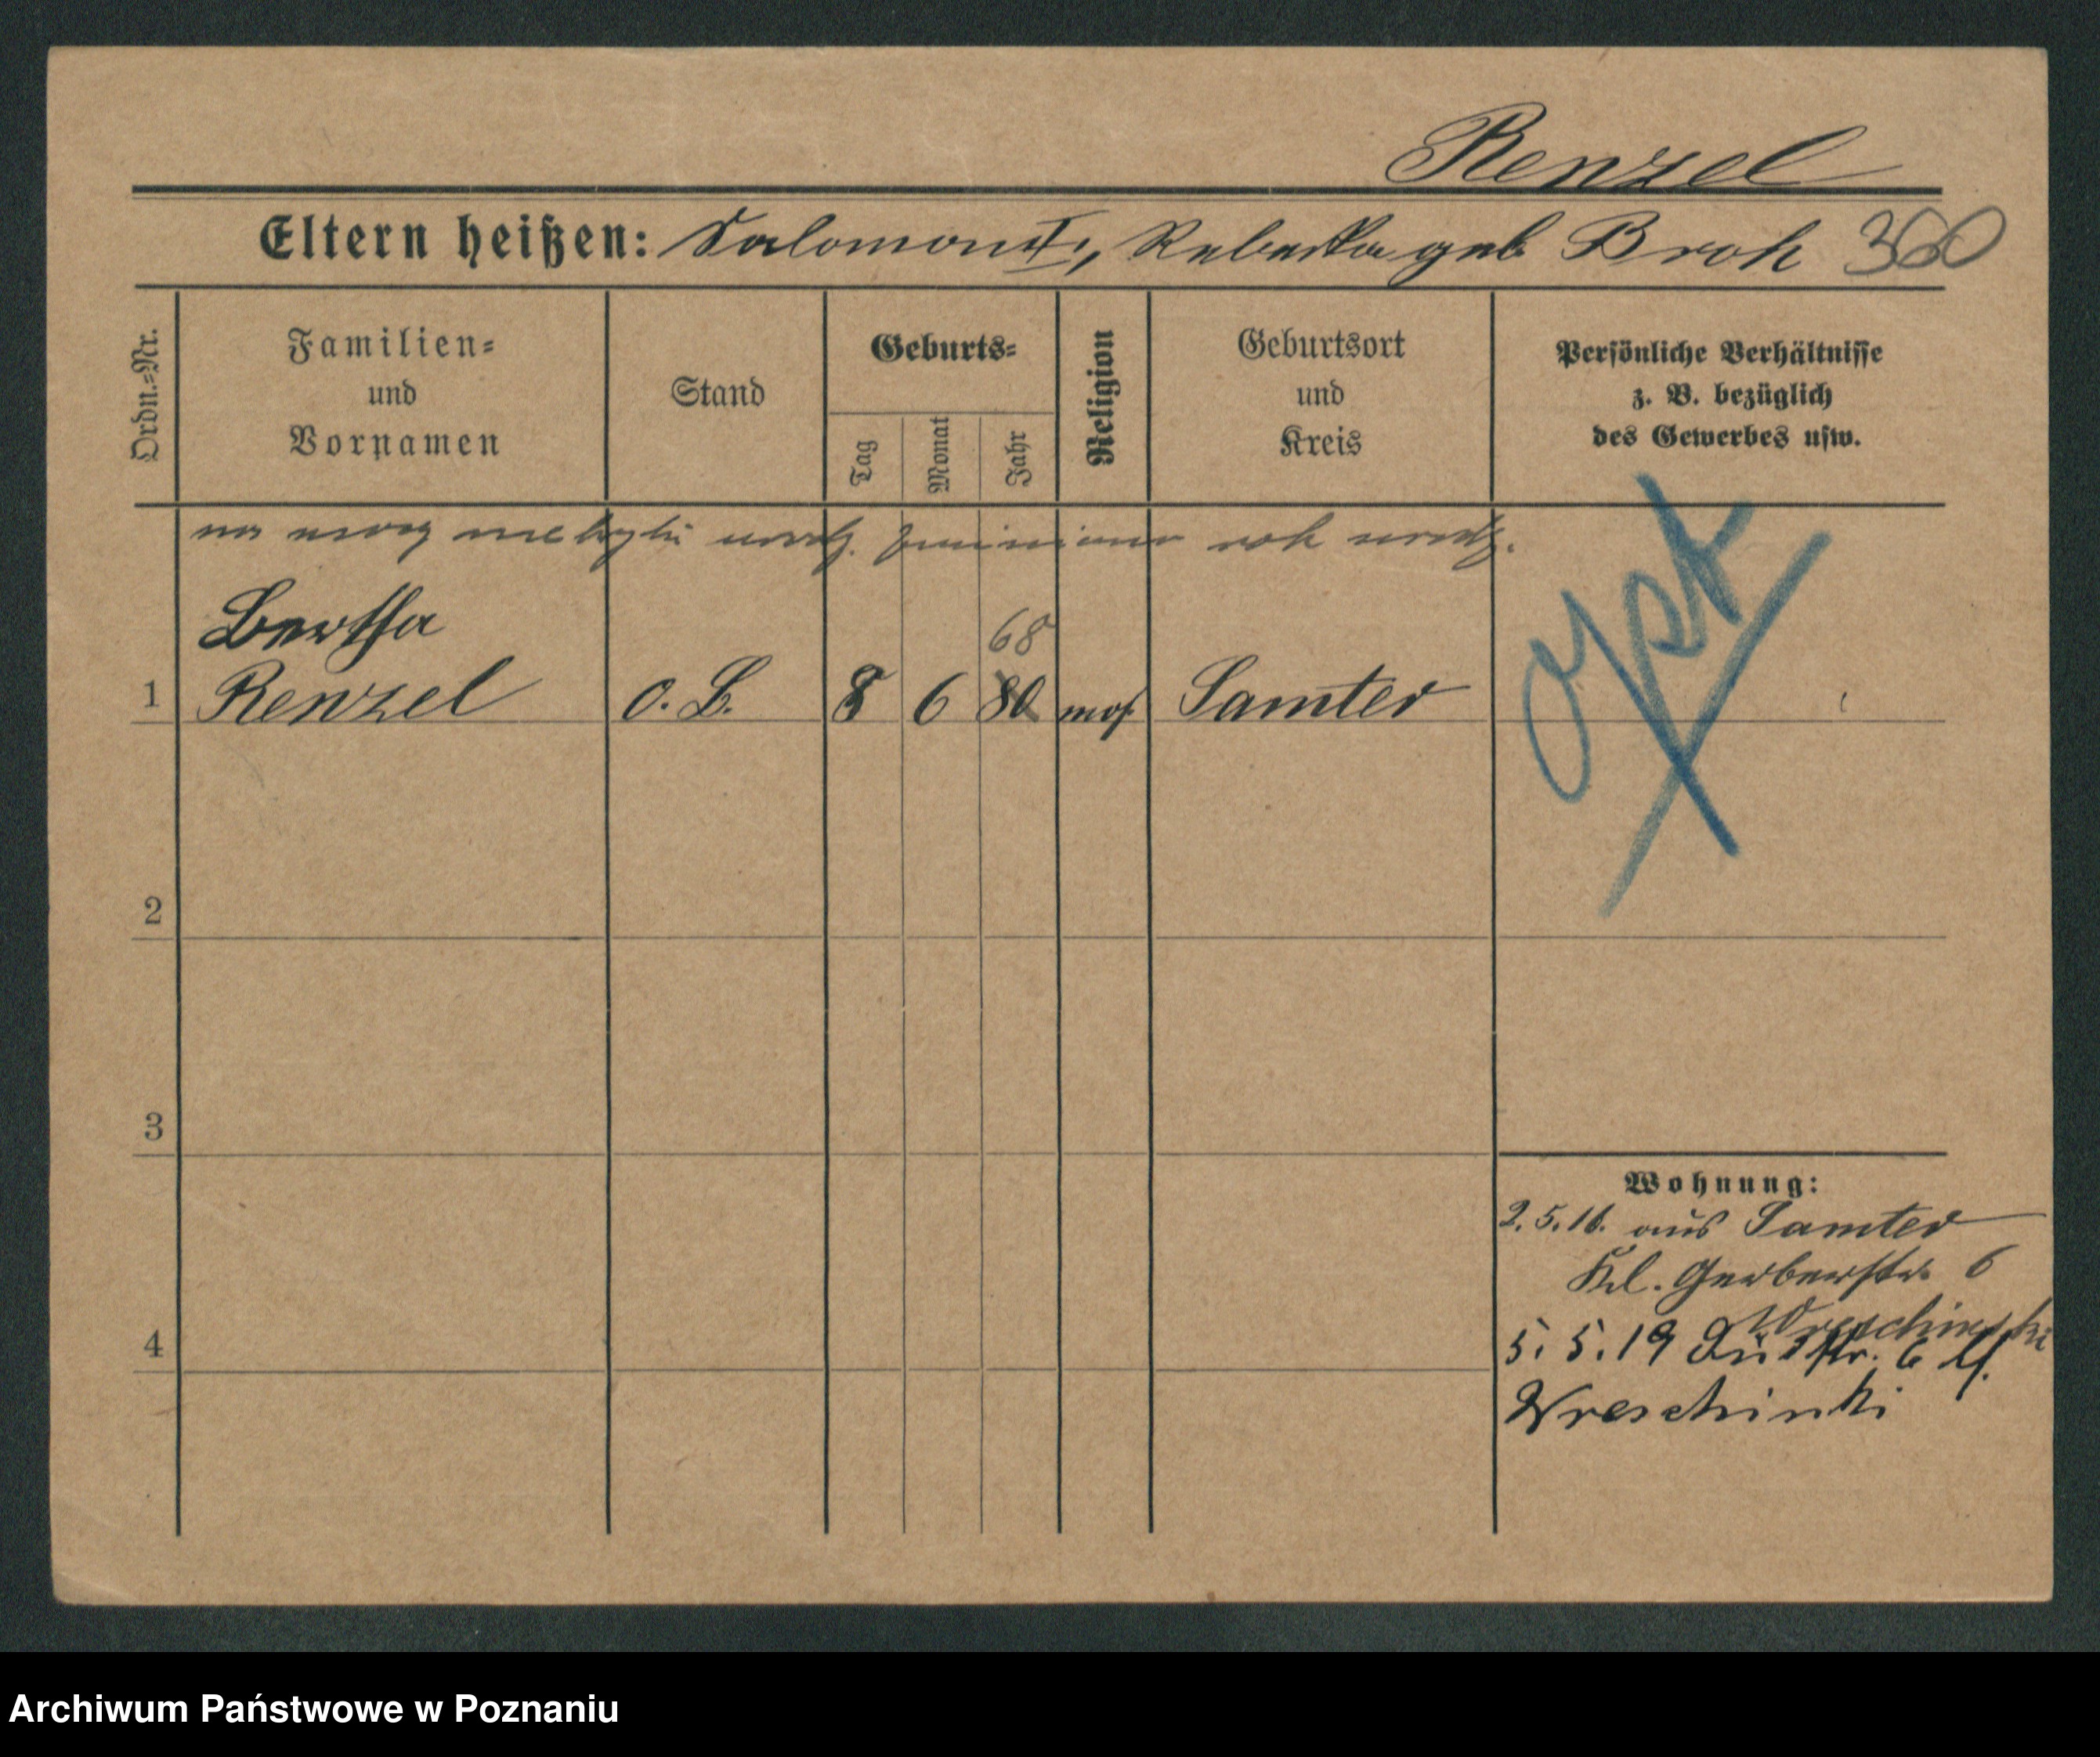 Renzel
Eltern heißen: Salomon †, Rebekka geb Broh 360
Ordn.=Nr.
Familien=
und
Vornamen
Stand
Geburts=
Tag
Monat
Jahr
Religion
Geburtsort
und
Kreis
Persönliche Verhältnisse
z. B. bezüglich
des Gewerbes usw.
na mocy metryki urodz. zmieniono rok urodz.
Bertha
68
1 Renzel o. B. 8 6 80 mos. Samter
2
3
4
Wohnung:
2.5.16. aus Samter
Kl. Gerberstr. 6
Wreschinski
5. 5. 19 str. 6 
Wreschinski
Archiwum Państwowe w Poznaniu